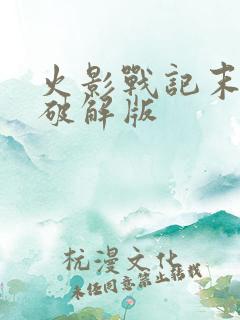 火影戰記末
破解版
杭漫文化
未经同意禁止转载